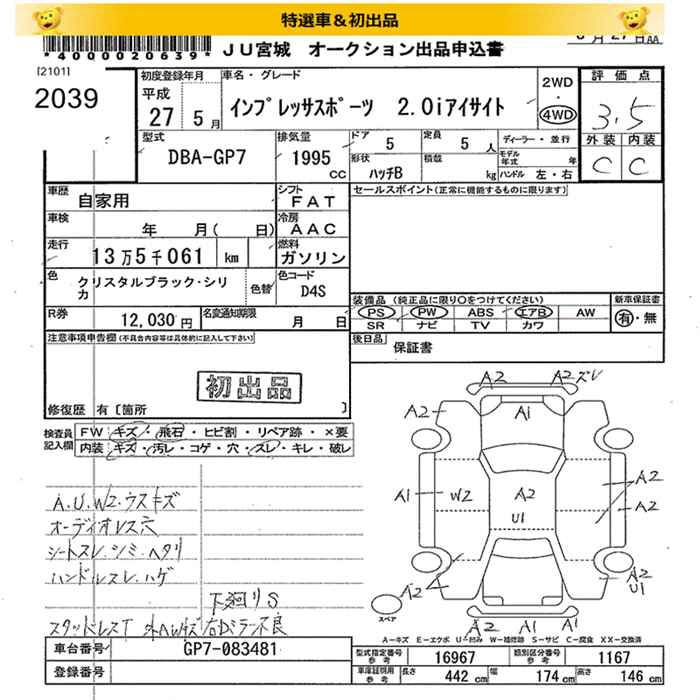 特選車＆初出品
*4000020639*
JU宮城 オークション出品申込書
[2101]
2039
初度登録年月 車名・グレード
平成 27 5月
インプレッサスポーツ 2.0iアイサイト
2WD
・
4WD
評価点
3.5
外装 内装
C C
型式 DBA-GP7
排気量 1995 CC
ドア 5 定員 5人
形状 ハッチB 積載 kg
ディーラー・並行
モデル年式 年
ハンドル 左・右
車歴 自家用
シフト FAT
セールスポイント(正常に機能するものに限ります)
車検 年 月( 日)
冷房 AAC
走行 13万5千061 km
燃料 ガソリン
色 クリスタルブラック・シリカ
色替
色コード D4S
R券 12,030円
名変通知期限 月 日
装備品 (純正品に限り○をつけてください)
PS PW ABS エアB AW
SR ナビ TV カワ
新車保証書
有・無
後日品 保証書
注意事項申告欄(不具合内容等は具体的に記入して下さい)
初出品
修復歴 有〔箇所 〕
検査員記入欄
FW キズ・飛石・ヒビ割・リペア跡・×要
内装 キズ・汚レ・コゲ・穴・スレ・キレ・破レ
A.U.W2.ウスキズ
オーディオレス穴
シートスレ.シミ.ヘタリ
ハンドルスレ.ハゲ
下廻りS
スタッドレスT 外AWキズ 右Dミラー不良
A2 A2 ズレ
A2 A1
A1 W2 A2 U1 A2 A2
A2 A2 U1
A2 A1 A1
スペア
A－キズ E－エクボ U－凹み W－補修跡 S－サビ C－腐食 XX－交換済
車台番号 GP7-083481
登録番号
型式指定番号 参考 16967
類別区分番号 参考 1167
車庫証明用 参考 長さ 442 cm 幅 174 cm 高さ 146 cm